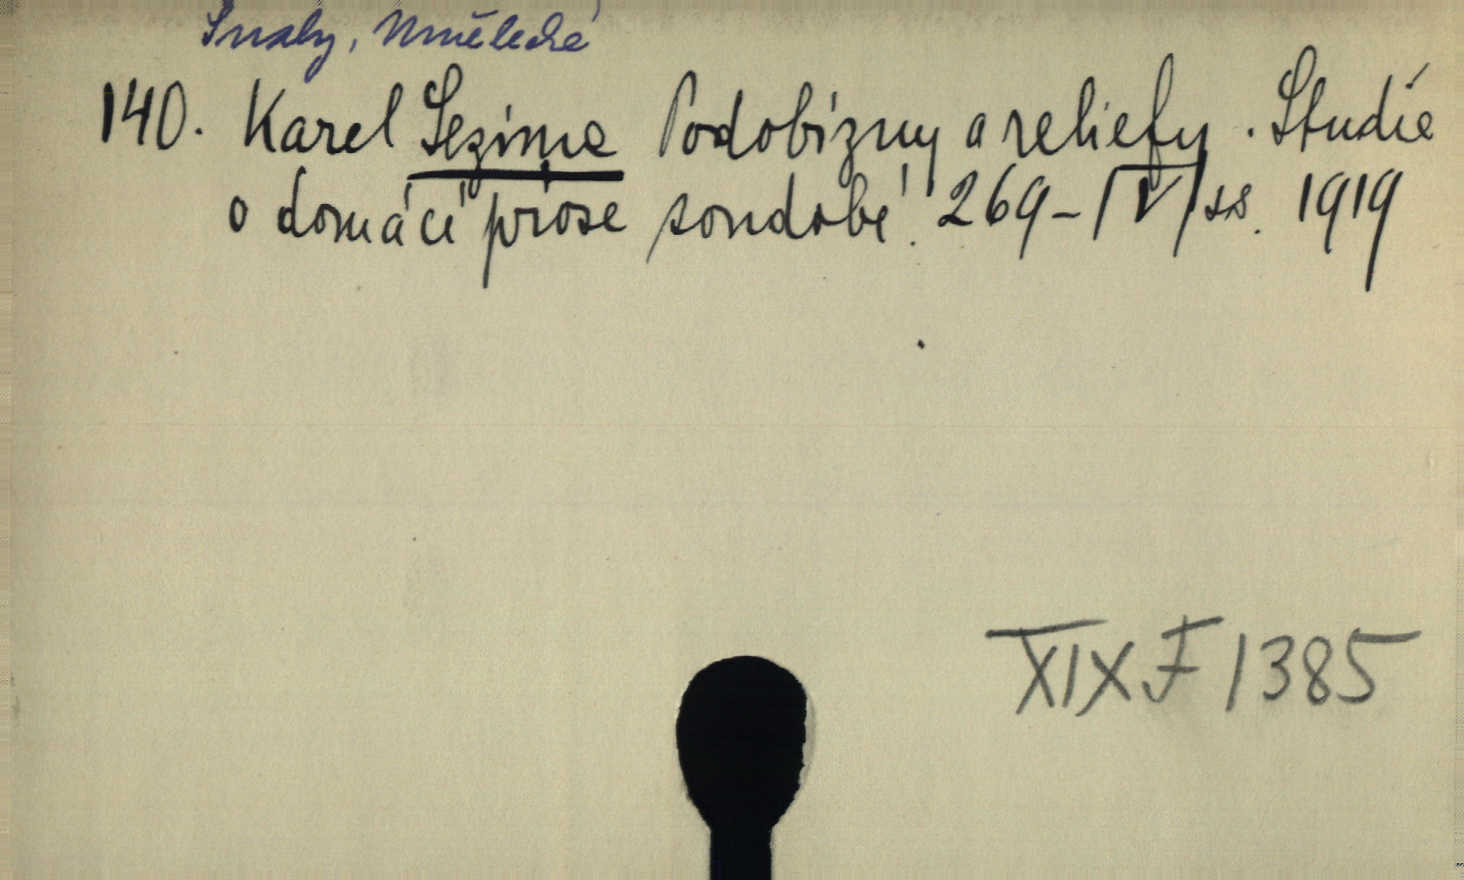 Snahy, Umělecké
140. Karel Sezima Podobizny a reliefy. Studie
o domácí prose soudobé. 269-|V| ss. 1919
XIX F 1385